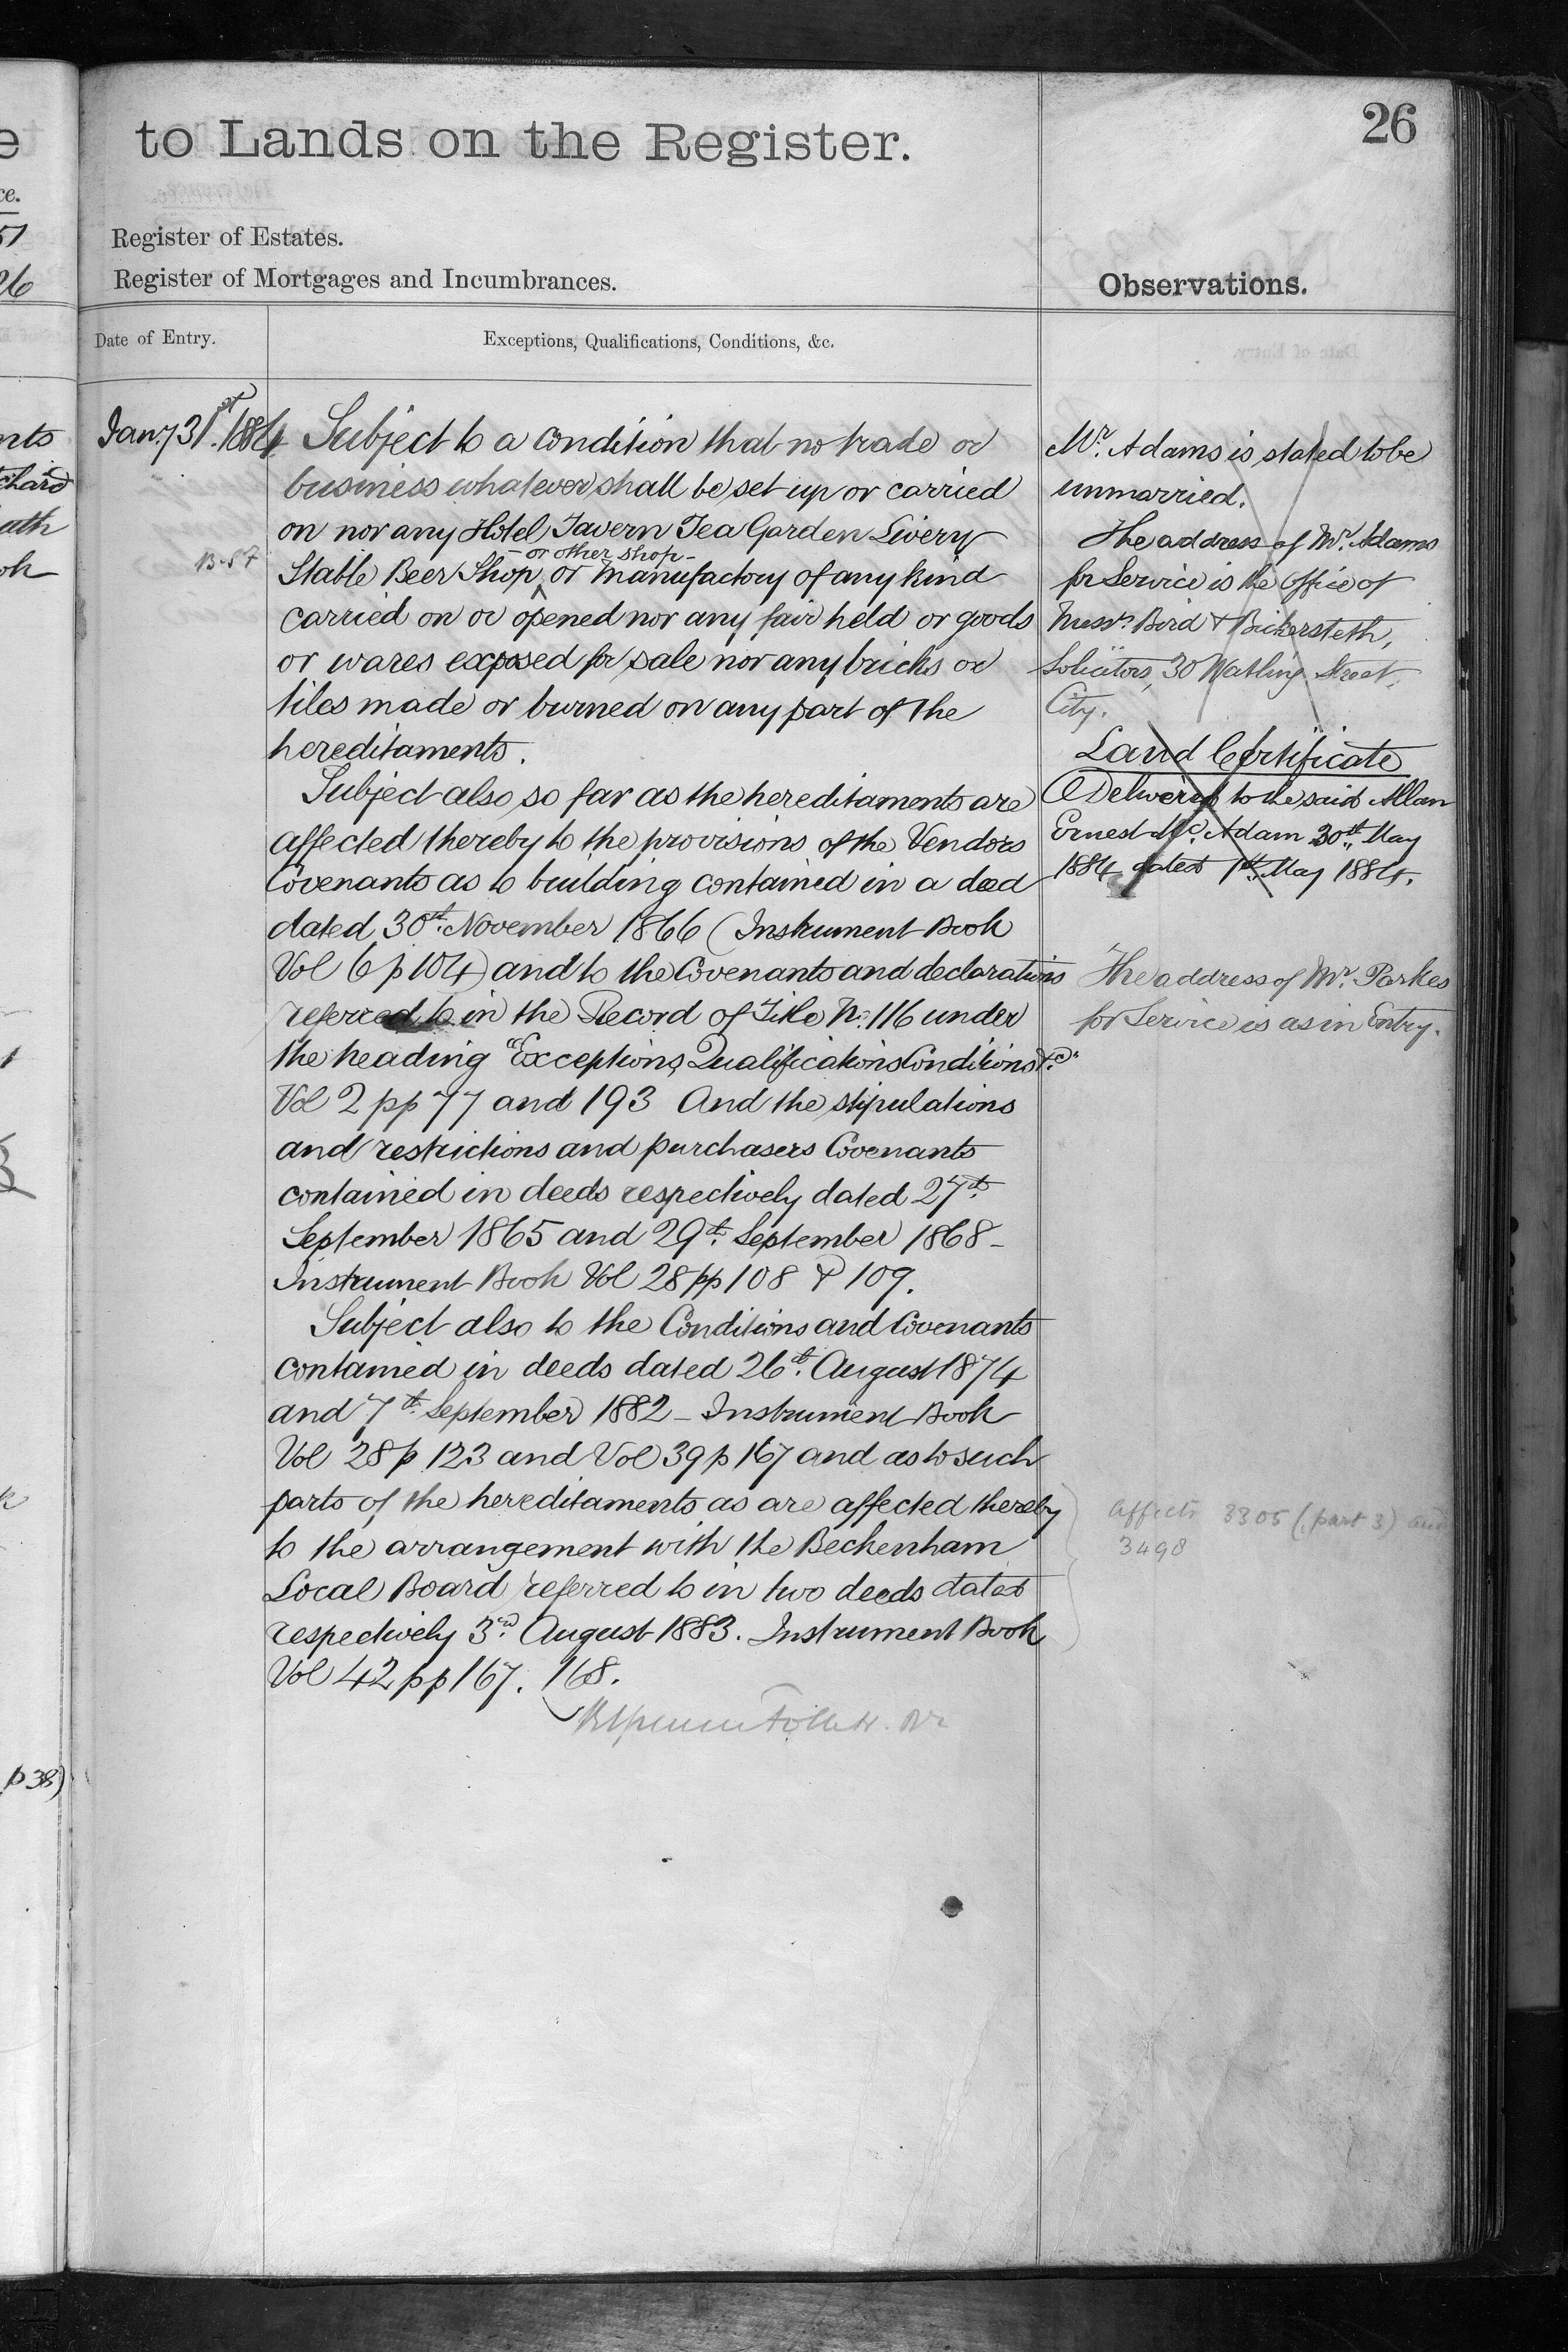 to Lands on the Register.
26
Register of Estates.
Register of Mortgages and Incumbrances.
Observations.
Date of Entry.
Exceptions, Qualifications, Conditions, &c.
Jany 31st. 1884
Subject to a condition that no trade or
business whatever shall be set up or carried
on nor any Hotel Tavern Tea Garden Livery
- or other shop -
B.57
Stable Beer Shop ^ or manufactory of any kind
carried on or opened nor any fair held or goods
or wares exposed for sale nor any bricks or
tiles made or burned on any part of the
hereditaments.
Subject also so far as the hereditaments are
affected thereby to the provisions of the Vendors
Covenants as to building contained in a deed
dated 30th. November 1866 (Instrument Book
Vol 6 p 104) and to the Covenants and declarations
referred to in the Record of Title No. 116 under
the heading "Exceptions Qualifications Conditions &c."
Vol 2 pp 77 and 193 And the stipulations
and restrictions and purchasers Covenants
contained in deeds respectively dated 27th.
September 1865 and 29th. September 1868 -
Instrument Book Vol 28 pp 108 & 109.
Subject also to the Conditions and Covenants
contained in deeds dated 26th. August 1874
and 7th. September 1882 - Instrument Book
Vol 28 p 123 and Vol 39 p 167 and as to such
parts of the hereditaments as are affected thereby
to the arrangement with the Beckenham
Local Board referred to in two deeds dated
respectively 3rd. August 1883. Instrument Book
Vol 42 pp 167. 168.
Mr. Adams is stated to be
unmarried.
The address of Mr. Adams
for Service is the Office of
Messrs. Bird & Bickersteth,
Solicitors, 30 Watling Street,
City.
Land Certificate
Delivered to the said Allan
Ernest Mc. Adam 30th. May
1884 dated 1st. May 1884.
The address of Mr. Parkes
for Service is as in Entry.
Affects 3305 (part 3) and
3498
e
ce.
51
26
nts
chard
ath
ok
p 38)